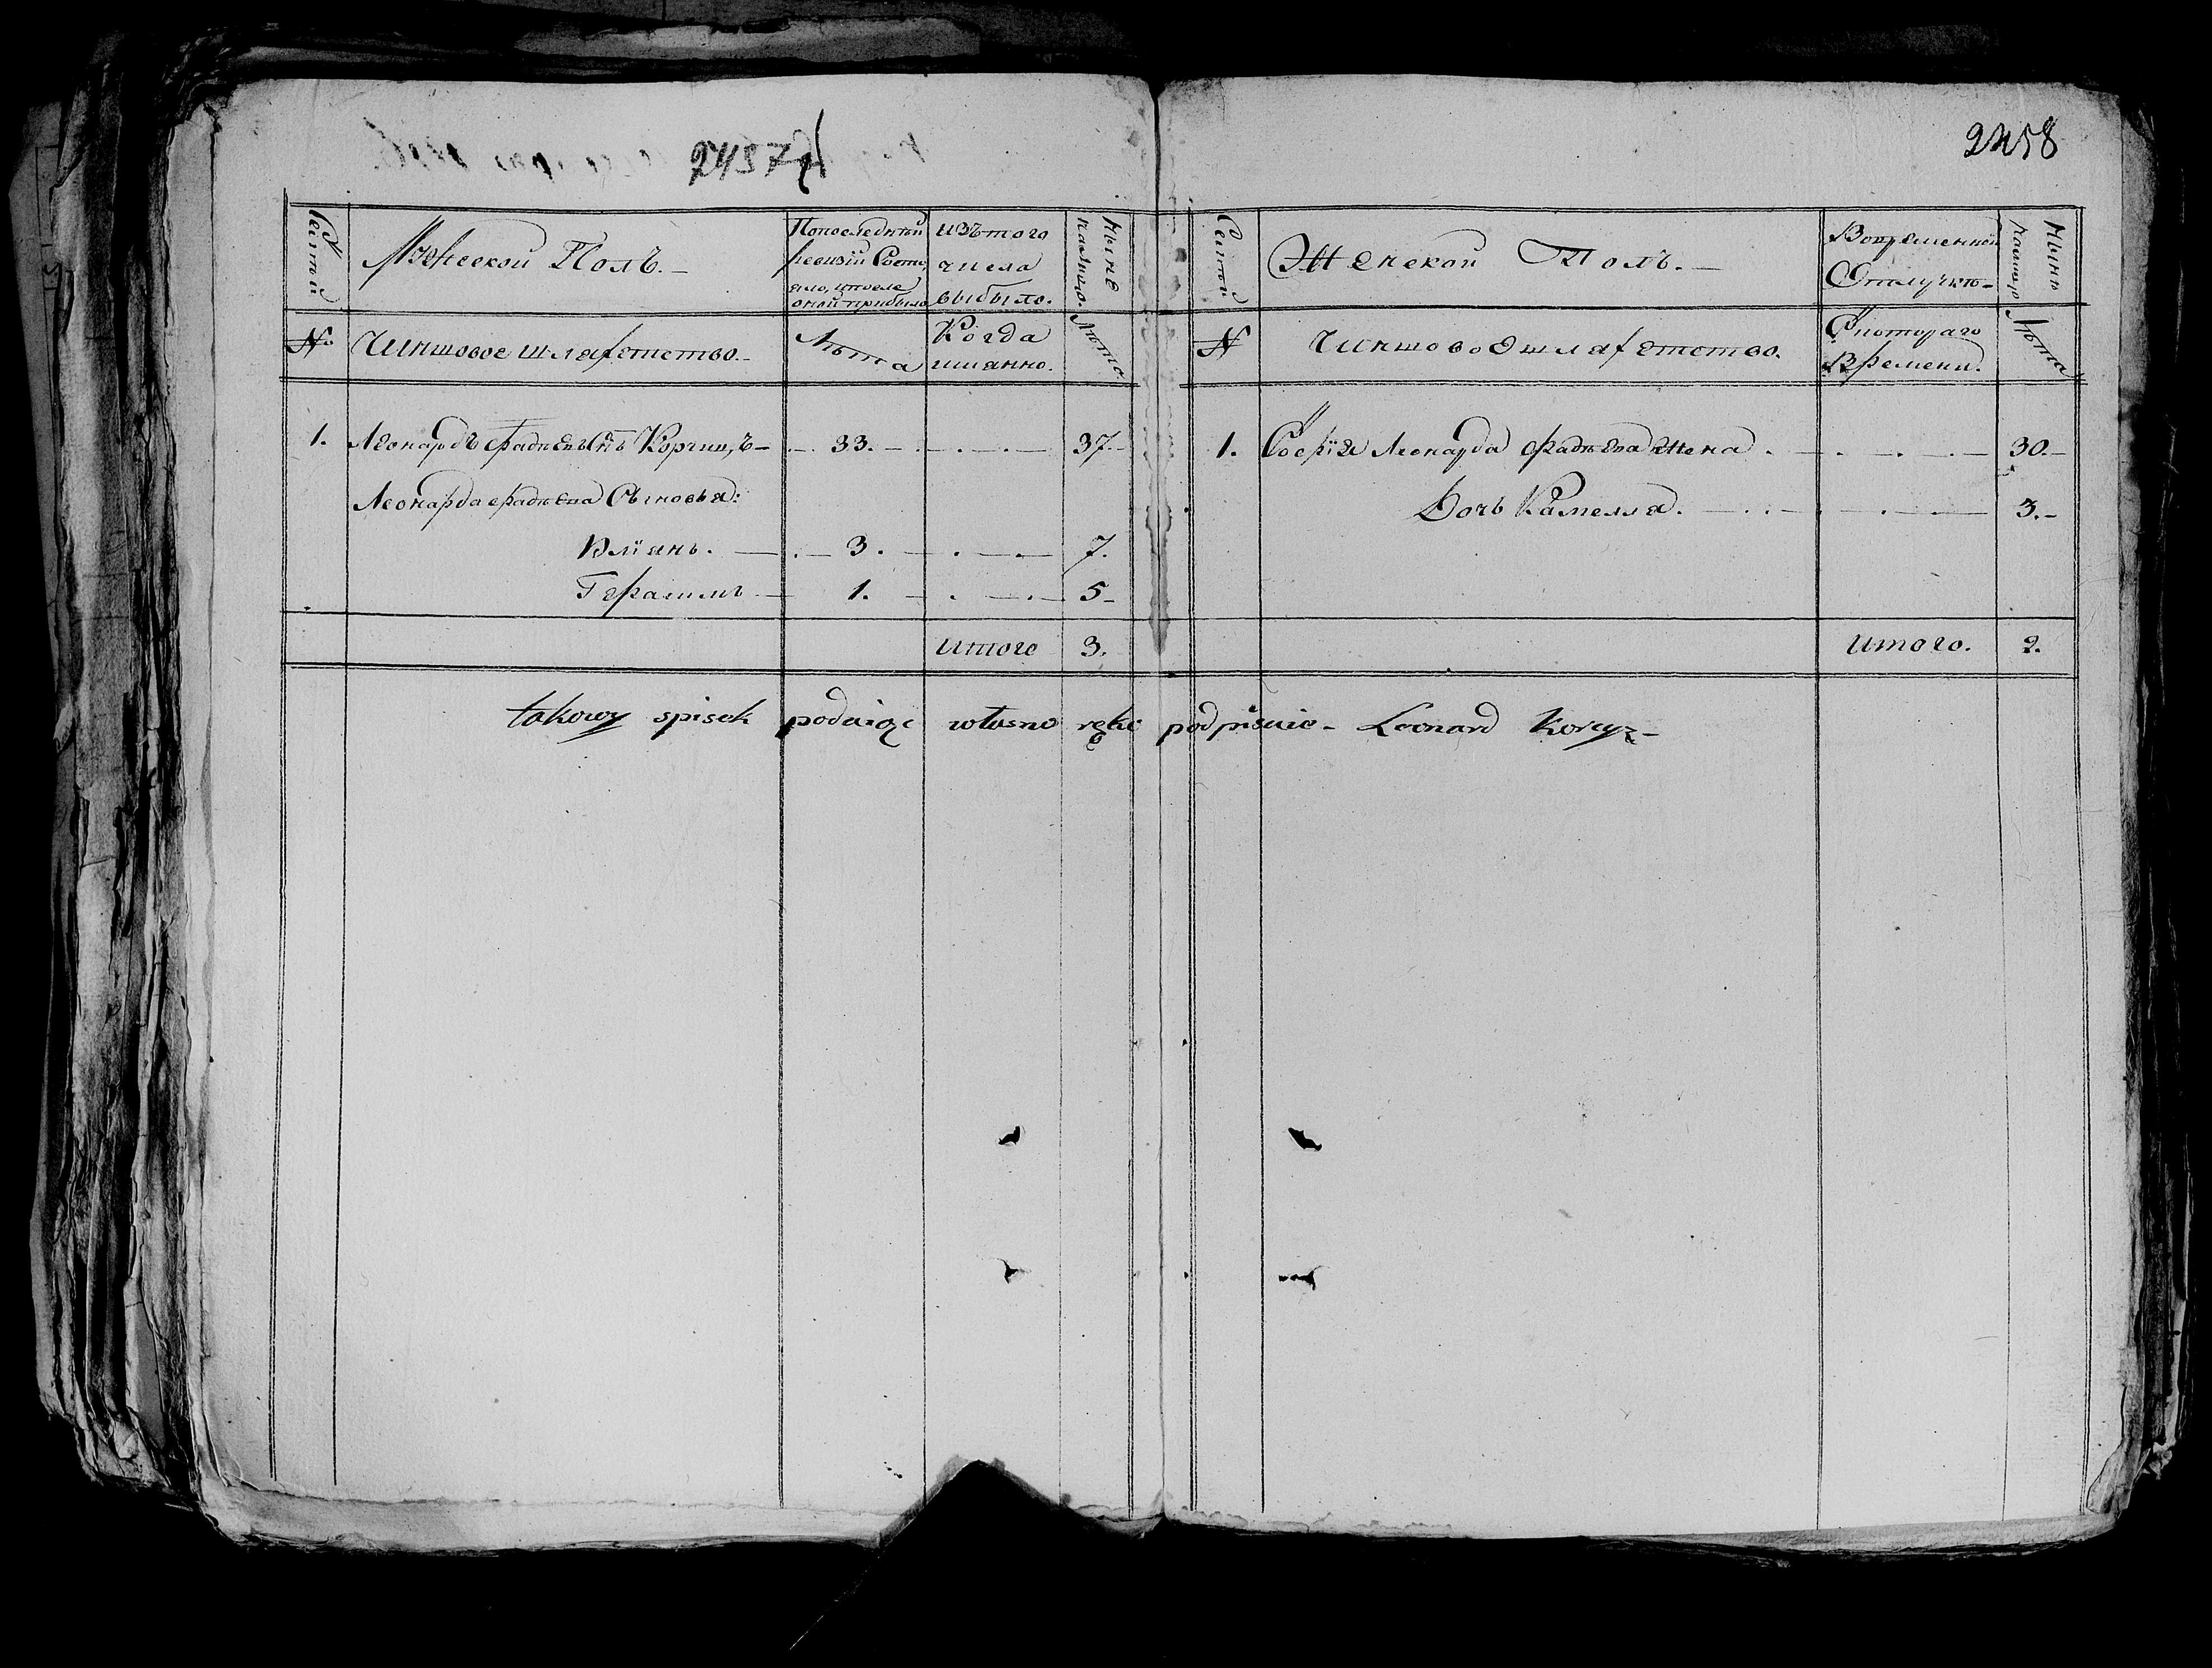 2457
2458
Семьи
Мужеской Полъ.
По последнѣй ревизіи Состо
яло, и после
оной прибыло
изъ того
числа
выбыло.
Ныне
налицо.
№
Чиншовое шляхетство.
Лѣта
Когда
имянно.
Лѣта
1. Леонардъ Фадѣевъ Сынъ Корчиц,ъ 33. 37.
Леонарда Фадѣева Сыновья:
Юліянъ. 3. 7.
Герасимъ 1. 5
итого 3.
Семьи
Женской Полъ.
Во временной
Отлучкѣ
Ныне
налицо
№
Чиншовое шляхетство.
С котораго
Времени.
Лѣта
1. Софія Леонарда Фадѣева Жена. 30.
Дочь Камелля. 3.
итого. 2.
takowy spisek podaiąc własno ręko podpisuie - Leonard Korcyz